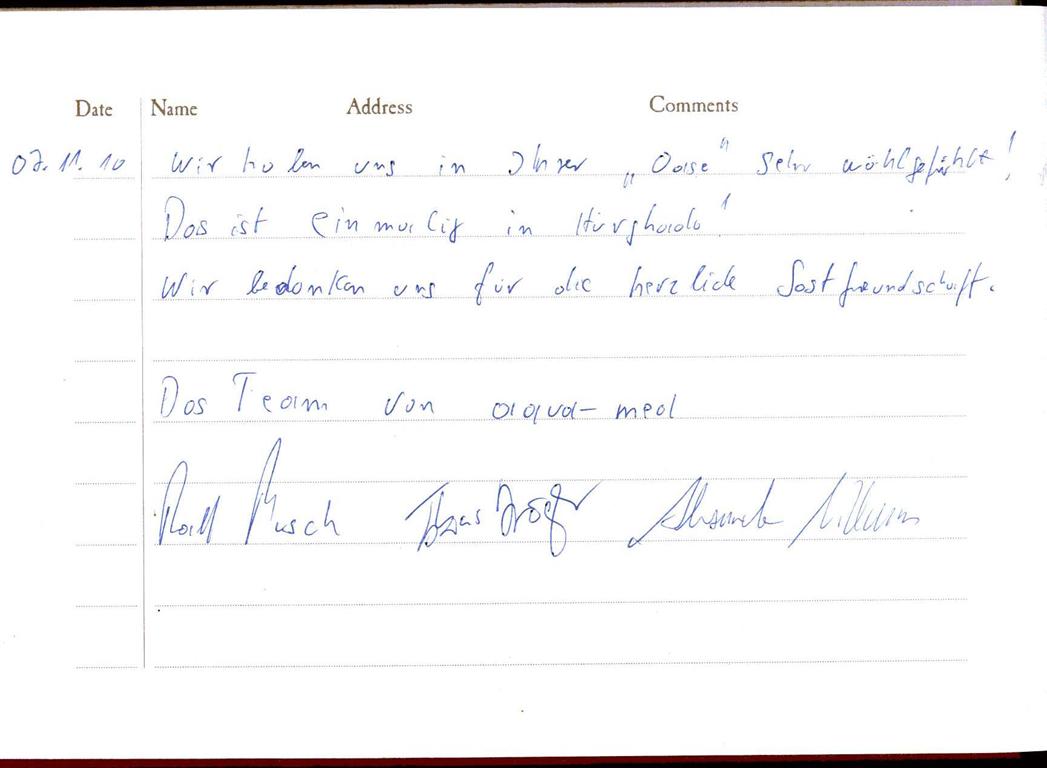 Date Name Address Comments
07.11.10 Wir haben uns in Ihrer „Oase“ sehr wohlgefühlt!
Das ist einmalig in Hurghada!
Wir bedanken uns für die herzliche Gastfreundschaft.
Das Team von aqua-med